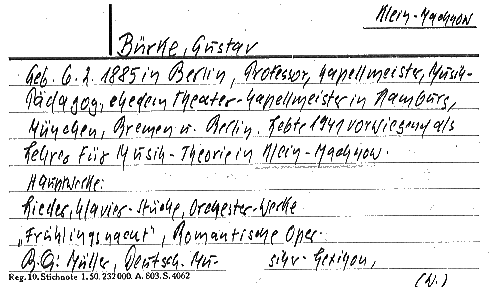 Klein-Machnow
Bürke, Gustav
Geb. 6.2.1885 in Berlin, Professor, Kapellmeister, Musik-
Pädagog, ehedem Theater-Kapellmeister in Hamburg,
München, Bremen u. Berlin. Lebte 1941 vorwiegend als
Lehrer für Musik-Theorie in Klein-Machnow.
Hauptwerke:
Lieder, Klavier-Stücke, Orchester-Werke
„Frühlingsnacht", Romantische Oper.
Müller, Deutsch. Mu- siker-Lexikon,
Reg. 10. Stichnote 1. 50. 232 000. A. 803. S. 4062